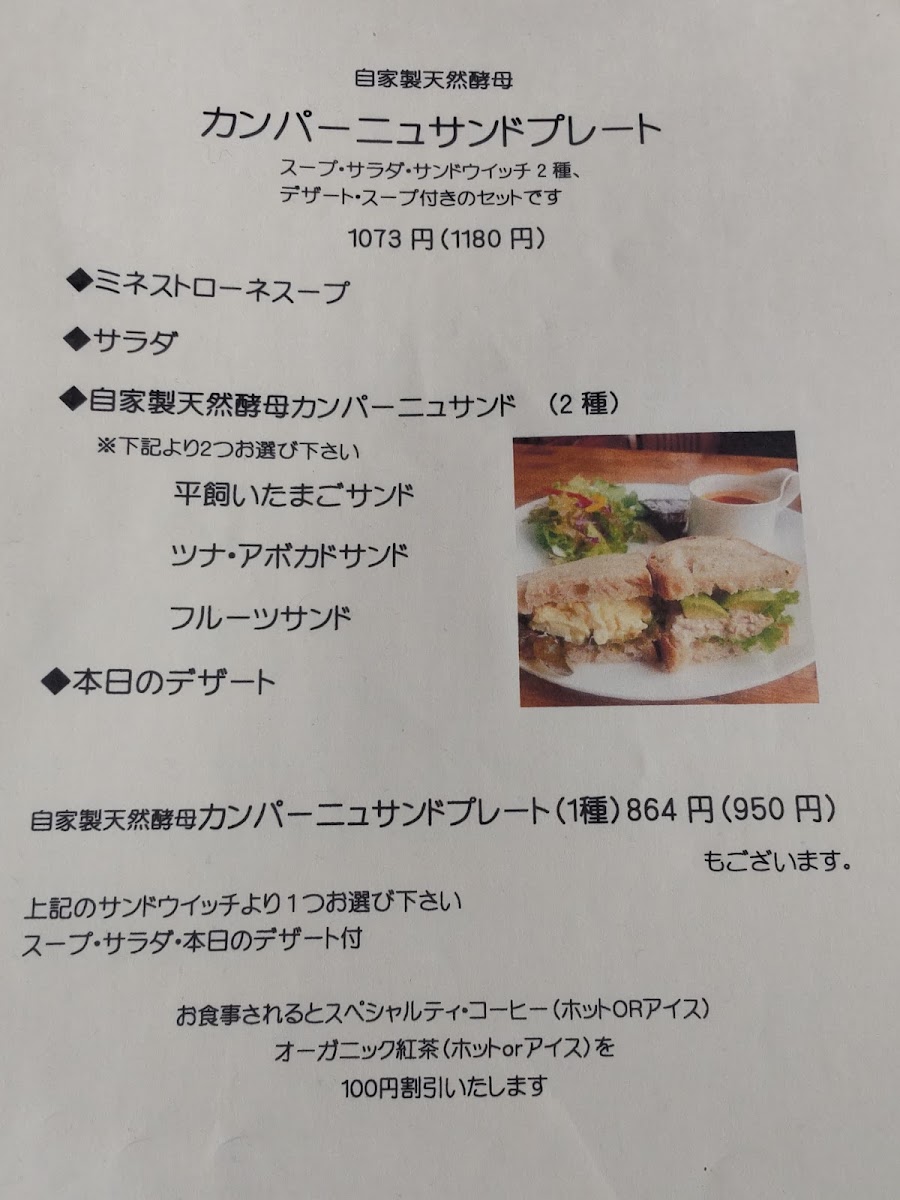 自家製天然酵母
カンパーニュサンドプレート
スープ・サラダ・サンドウイッチ2種、
デザート・スープ付きのセットです
1073 円(1180 円)
◆ミネストローネスープ
◆サラダ
◆自家製天然酵母カンパーニュサンド (2 種)
※下記より2つお選び下さい
平飼いたまごサンド
ツナ・アボカドサンド
フルーツサンド
◆本日のデザート
自家製天然酵母カンパーニュサンドプレート(1種)864 円(950 円)
もございます。
上記のサンドウイッチより1つお選び下さい
スープ・サラダ・本日のデザート付
お食事されるとスペシャルティ・コーヒー(ホットORアイス)
オーガニック紅茶(ホットorアイス)を
100円割引いたします